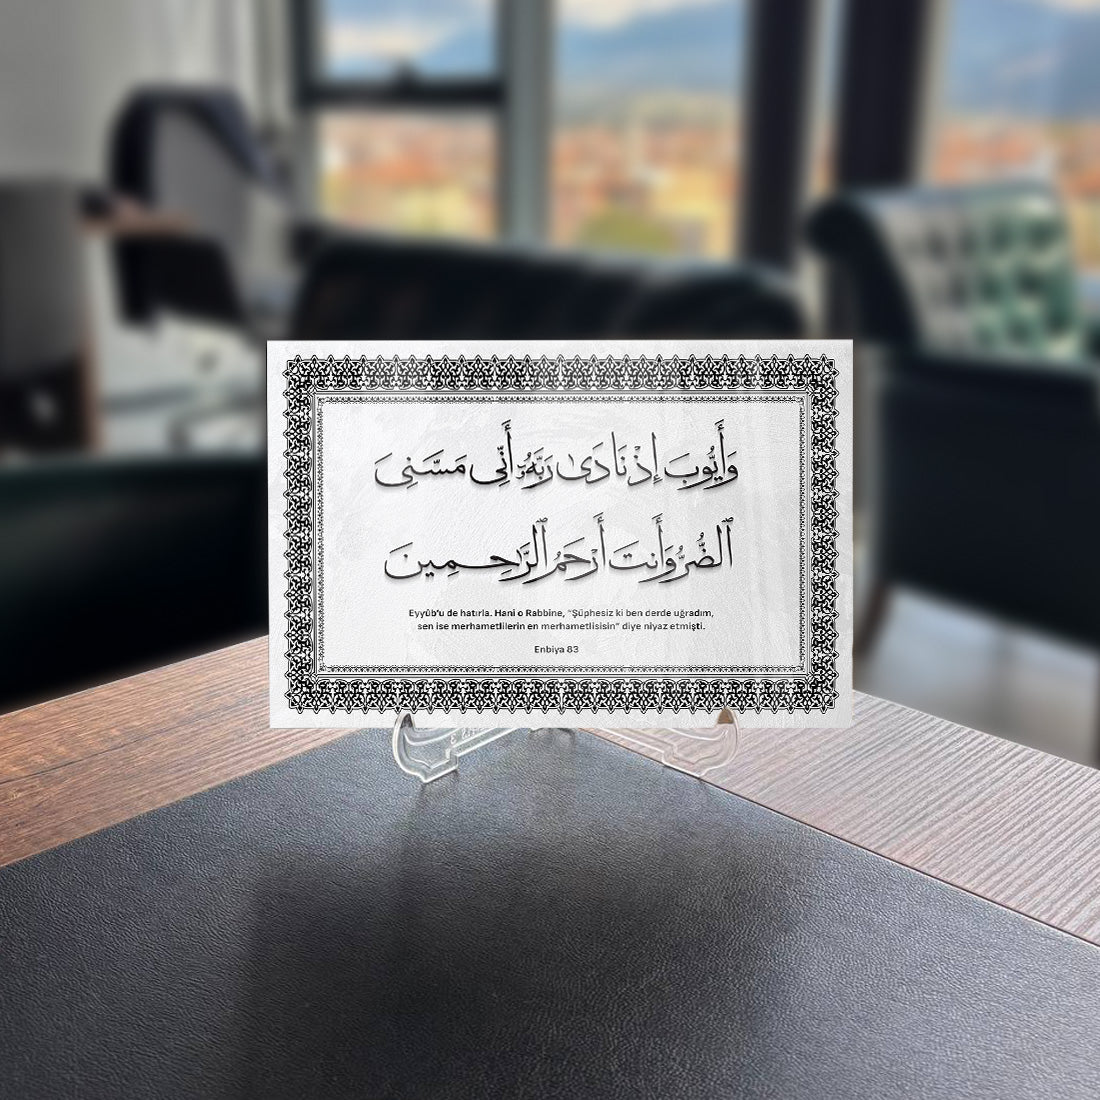 وَأَيُّوبَ إِذْ نَادَىٰ رَبَّهُۥٓ أَنِّى مَسَّنِىَ
ٱلضُّرُّ وَأَنتَ أَرْحَمُ ٱلرَّٰحِمِينَ
Eyyûb'u de hatırla. Hani o Rabbine, "Şüphesiz ki ben derde uğradım,
sen ise merhametlilerin en merhametlisisin" diye niyaz etmişti.
Enbiya 83